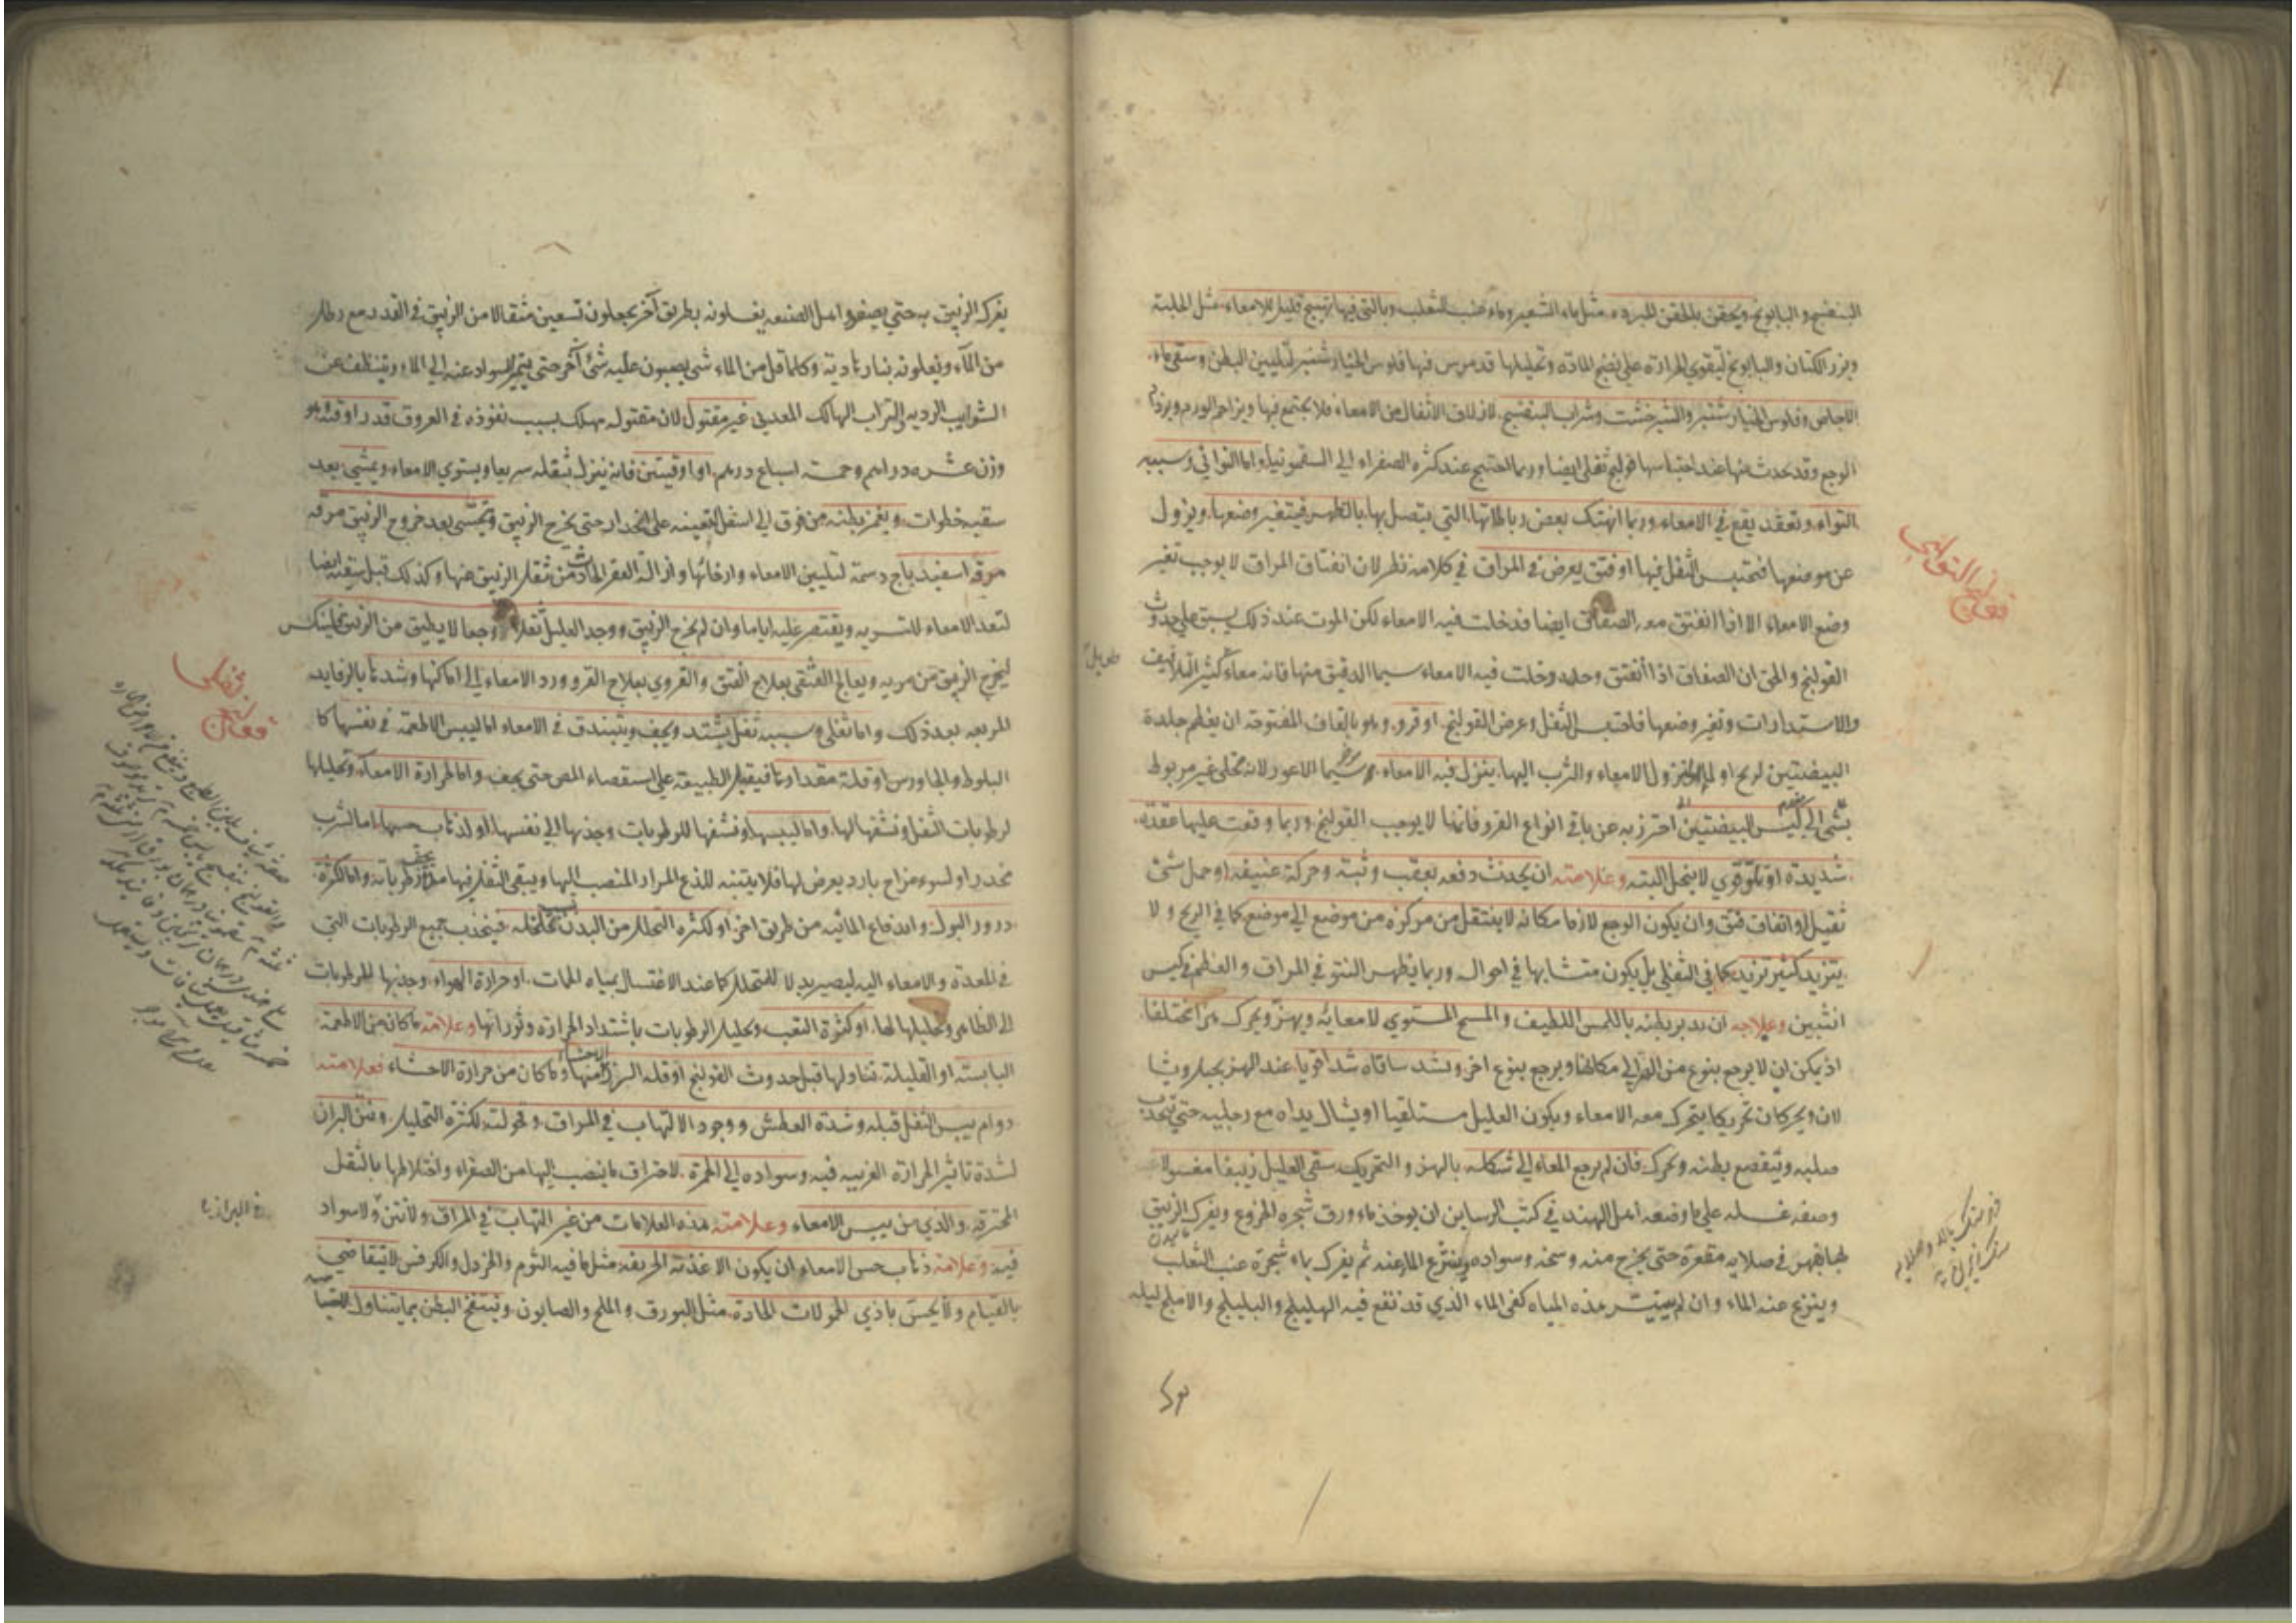 البنفسج والبابونج ويحقن بالحقن المبرده مثل ماء الشعير وماء عنب الثعلب وبالتي فيها تهييج قليل للامعاء مثل الحلبة
وبزر الكتان والبابونج ليقوي الحرارة علي نضج المادة وتحليلها قد مرس فيها فلوس الخيار شنبر لتليين البطن وسقي ماء
الاجاص وفلوس الخيار شنبر والشيرخشت وشراب البنفسج لازلاق الاثفال من الامعاء فلا يجتمع فيها ويزاحم الورم ويزداد
الوجع وقد يحدث منها عند احتباسها قولنج ثفلي ايضا وربما احتيج عند كثرة الصفراء الي السقمونيا واما التوائي وسببه
التواء وتعقد يقع في الامعاء وربما انهتك بعض رباطاتها التي يتصل بها بالظهر فيتغير وضعها ويزول
عن موضعها فتحتبس الثفل فيها او فتق يعرض في المراق في كلامه نظر لان انفتاق المراق لا يوجب تغير
وضع الامعاء الا اذا انفتق معه الصفاق ايضا فدخلت فيه الامعاء لكن الموت عند ذلك يسبق علي حدوث
القولنج والحق ان الصفاق اذا انفتق وحده دخلت فيه الامعاء سيما الدقيق منها فانه معاء كثير التلافيف
والاستدارات وتغير وضعها فاحتبس الثفل وعرض القولنج او قرو وهو بالقاف المفتوحة ان يعظم جلدة
البيضتين لريح او لماء او لنزول الامعاء والثرب اليها ينزل فيه الامعاء سيما الاعور لانه مخلي غير مربوط
بشئ الي كيس البيضتين احترز به عن باقي انواع القرو فانها لا يوجب القولنج وربما وقعت عليها عقدة
شديدة او تلو قوي لا ينحل البتة وعلامته ان يحدث دفعه بعقب وثبة وحركة عنيفه او حمل شئ
ثقيل او اتفاق فتق وان يكون الوجع لازما مكانه لا ينتقل من مركزه من موضع الي موضع كما في الريح ولا
يتزيد كثير تزيد كما في الثفلي بل يكون متشابها في احواله وربما يظهر النتو في المراق والعظم في كيس
انثيين وعلاجه ان يدبر بطنه باللمس اللطيف والمسح المستوي لامعائه ويهز ويحرك هزا مختلفا
اذ يمكن ان لا يرجع بنوع من الهز الي مكانها ويرجع بنوع اخر ويشد ساقاه شدا قويا عند الهز
لان ويحركان تحريكا يتحرك معه الامعاء ويكون العليل مستلقيا او يشال يداه مع رجليه حتي
صلبه ويتقصع بطنه ويحرك فان لم يرجع المعاء الي شكله بالهز والتحريك سقي العليل زيبقا مغسولا
وصفه غسله علي ما وضعه اهل الهند في كتب الرساين ان يوخذ ماء ورق شجره الخروع ويفرك الزيبق
بها بفهر في صلايه مقعرة حتي يخرج منه وسخه وسواده وينتزع الماء عنه ثم يفرك بماء شجرة عنب الثعلب
وينزع عنه الماء وان لم يتيسر هذه المياه كفي الماء الذي قد نقع فيه الهليلج والبليلج والاملج ليله
قولنج التوائي
يفرك الزيبق به حتي يصفو واهل الصنعه يغسلونه بطريق آخر يجعلون تسعين مثقالا من الزيبق في القدر مع رطل
من الماء ويغلونه بنار هادية وكلما قل من الماء شئ يصبون عليه شئ آخر حتي يتميز السواد عنه الي الماء ويتنظف عن
الشوايب الرديه والتراب الهالك المعدني غير مقتول لان مقتوله مهلك بسبب نفوذه في العروق قدر اوقية وهو
وزن عشره دراهم وخمسة اسباع درهم او اوقيتين فانه ينزل بثقله سريعا ويستوي الامعاء ويمشي بعد
سقيه خطوات ويغمز بطنه من فوق الي اسفل لتعينه علي انحدار حتي يخرج الزيبق ويتحسي بعد خروج الزيبق مرقه
مرقه اسفيدباج دسمة لتليين الامعاء وارخائها وازالة العقر الحادث من ثقل الزيبق عنها وكذلك قبل سقيه ايضا
لتعد الامعاء للتسويه ويقتصر عليه اياما وان لم يخرج الزيبق ووجد العليل ثقلا ووجعا لا يطيق من الزيبق فلينكس
ليخرج الزيبق من مريه ويعالج الفتقي بعلاج الفتق والقروي بعلاج القرو ورد الامعاء الي اماكنها وشدها بالرفايد
المربعه بعد ذلك واما ثفلي وسببه ثفل يشتد ويجف ويتبندق في الامعاء اما ليبس الاطعمة في نفسها كا
البلوط والجاورس او قلة مقدارها فيقبل الطبيعة علي استقصاء المص حتي يجف واما لحرارة الامعاء وتحليلها
لرطوبات الثفل ونشفها لها واما ليبسها ونشفها للرطوبات وجذبها الي نفسها او لذهاب حسها اما لشرب
مخدر او لسوء مزاج بارد يعرض لها فلا يتنبه للذع المرار المنصب اليها ويبقي الثفل فيها مدة يجف رطوباته واما لكثرة
درور البول واندفاع المائيه من طريق اخر او لكثره التحلل من البدن فينجذب جميع الرطوبات التي
في المعدة والامعاء اليه ليصير بدلا للمتحلل كما عند الاغتسال بمياه الحمات او حرارة الهواء وجذبها للرطوبات
الي الظاهر وتحليلها لها او كثرة التعب وتحليل الرطوبات باشتداد الحرارة وثورانها وعلامة ما كان من الاطعمة
اليابسة او القليلة تناولها قبل حدوث القولنج او قلة الرز منها وما كان من حرارة الاحشاء فعلامته
دوام يبس الثفل قبله وشدة العطش ووجود الالتهاب في المراق وقحولته لكثرة التحليل ونتن البراز
لشدة تاثير الحرارة الغريبه فيه وسواده الي الحمرة لاحتراق ما ينصب اليها من الصفراء واختلاطها بالثفل
المحترقه والذي من يبس الامعاء وعلامته هذه العلامات من غير التهاب في المراق ولا نتن ولا سواد
فيه وعلامة ذهاب حس الامعاء ان يكون الاغذية الحريفه مثل ما فيه الثوم والخردل والكرفس لا يتقاضي
بالقيام ولا يحس باذي الحمولات الحادة مثل البورق والملح والصابون وينتفخ البطن بما يتناول
قولنج ثفلي